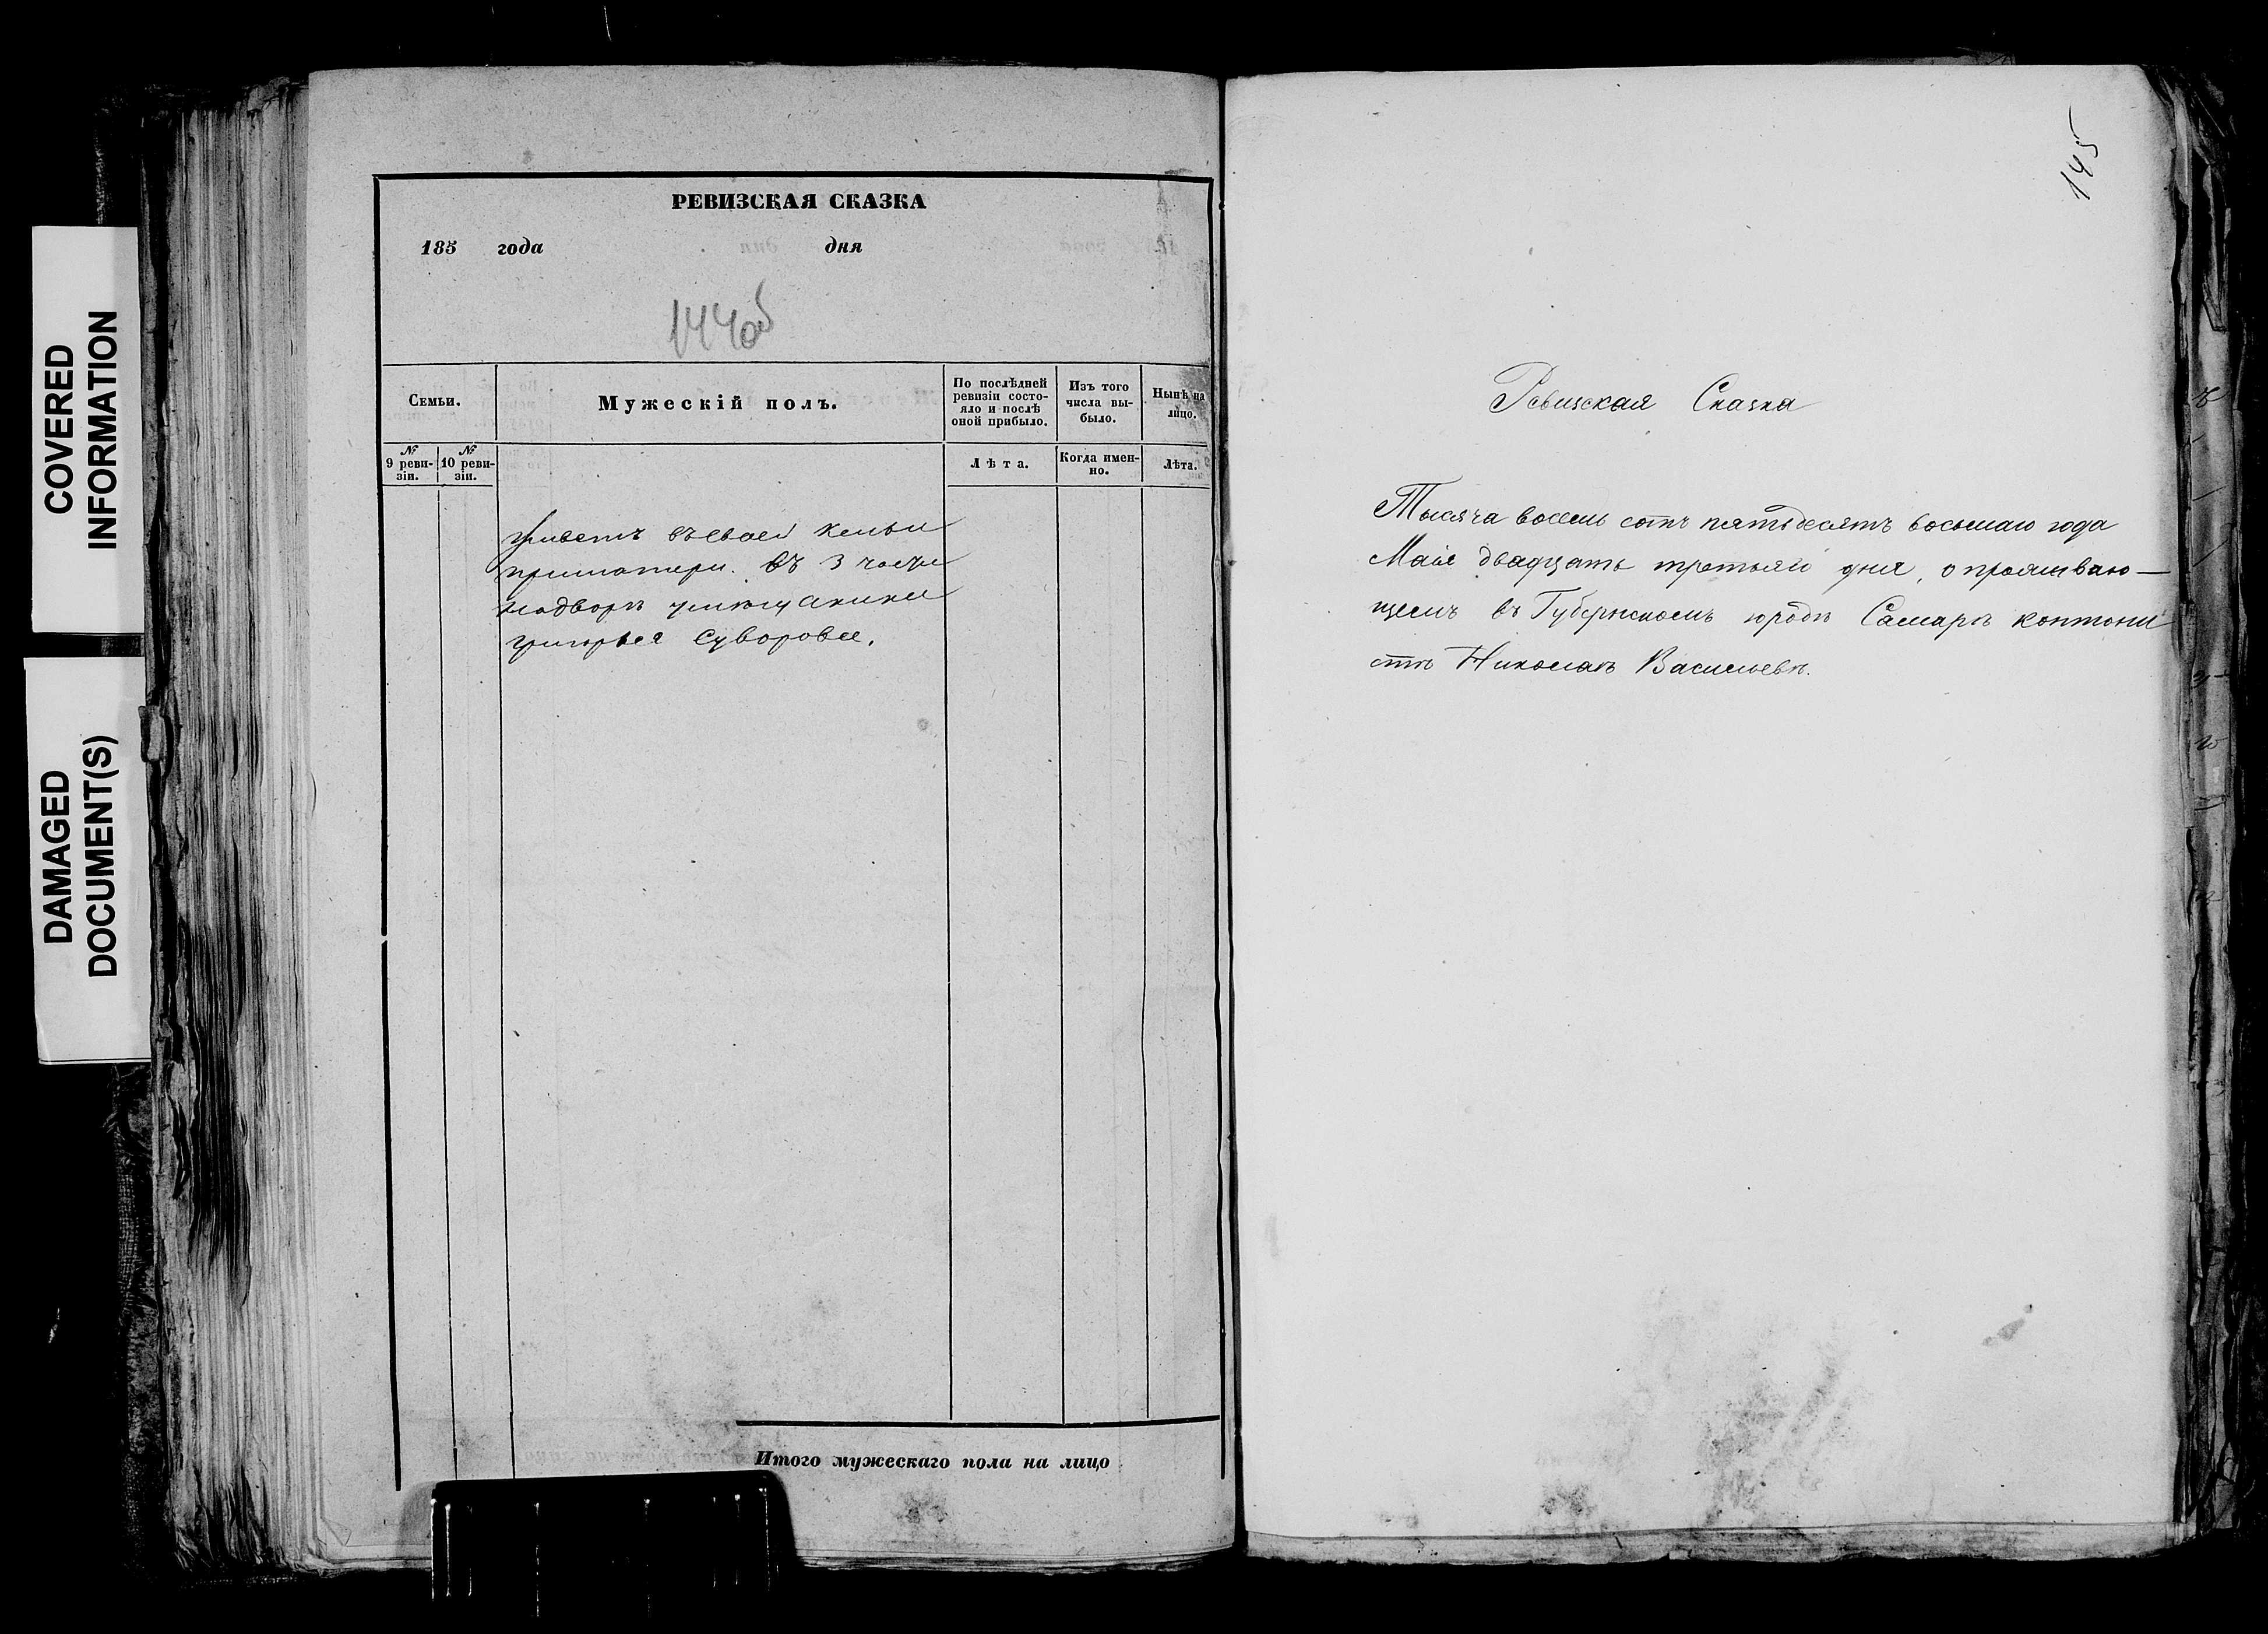 COVERED
INFORMATION
DAMAGED
DOCUMENT(S)
РЕВИЗСКАЯ СКАЗКА
185 года дня
144об
Семьи.
Мужескій полъ.
По послѣдней
ревизіи состо-
яло и послѣ
оной прибыло.
Изъ того
числа вы-
было.
Нынѣ на
лицо.
№
9 реви-
зіи.
№
10 реви-
зіи.
Лѣта.
Когда имен-
но.
Лѣта.
живетъ въ своей кельи
приматери. въ 3 части
надворѣ умѣщанина
григорья Суворова.
Итого мужескаго пола на лицо
145
Ревизская Сказка
Тысяча восемь сотъ пятьдесятъ восьмаго года
Маія двадцать третьяго дня, о проживаю-
щемъ въ Губернскомъ городѣ Самарѣ контони
стѣ Николаѣ Васильевѣ.